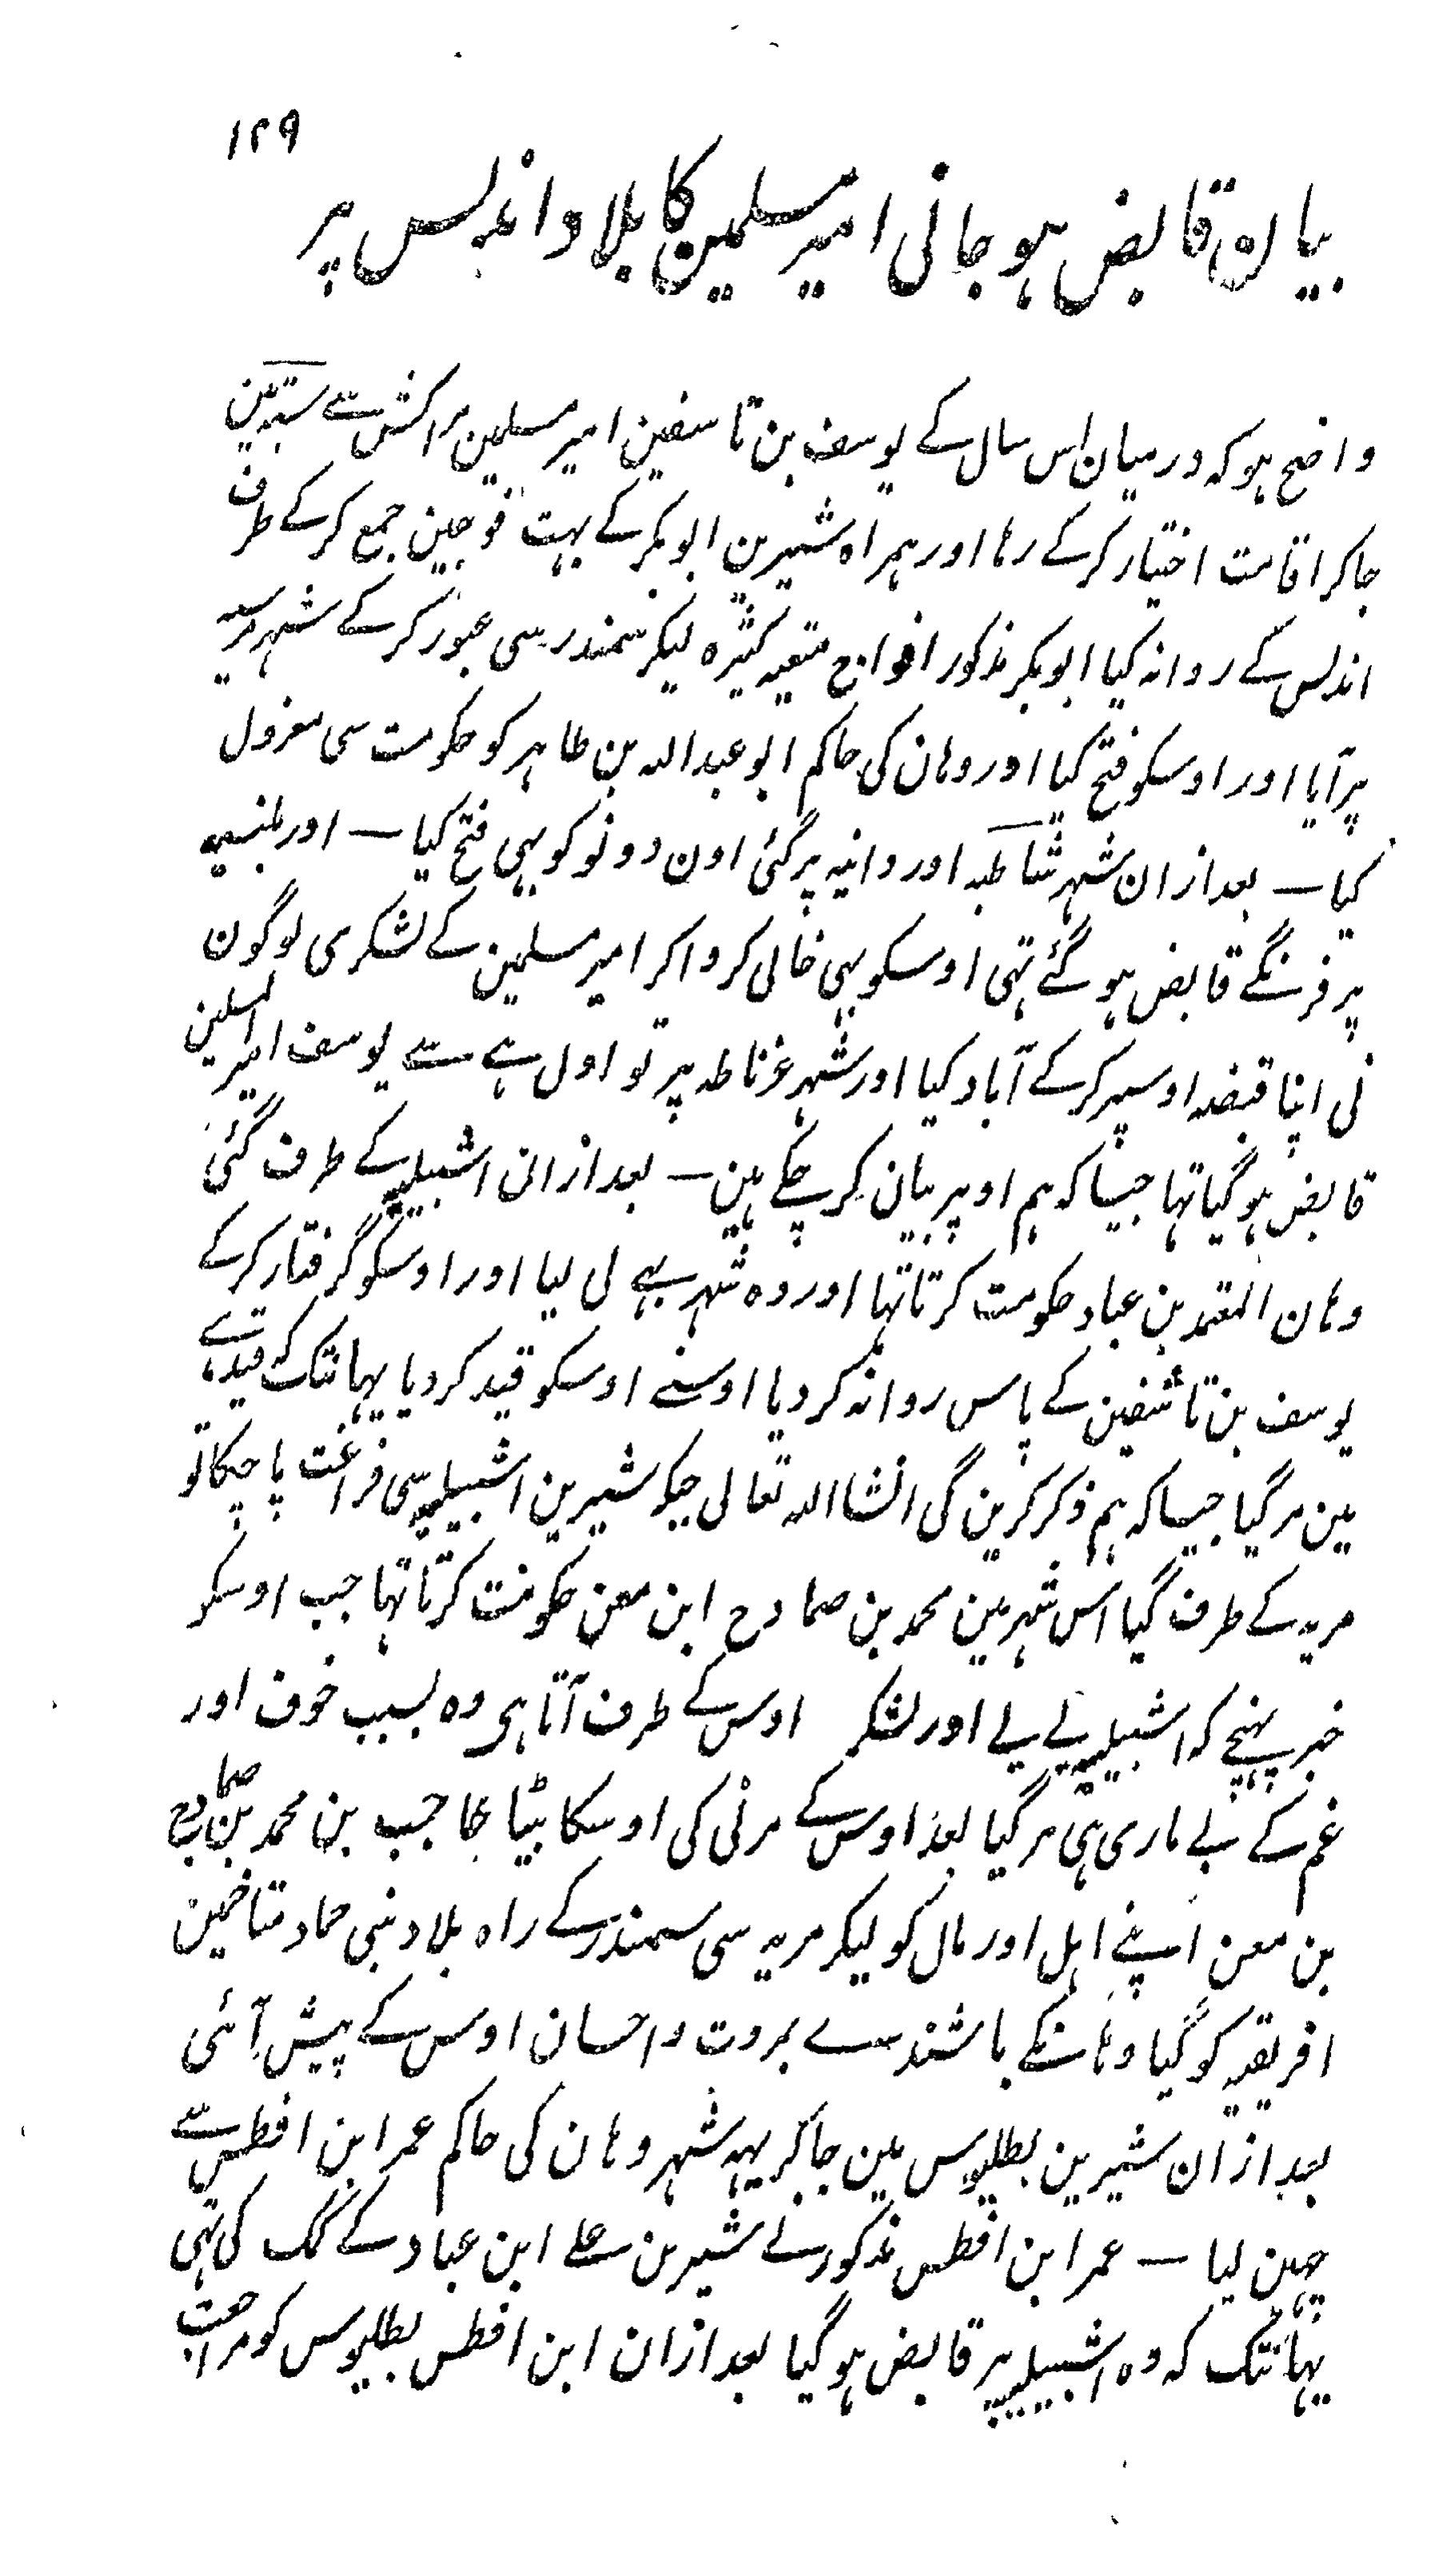 ۱۲۹
بیان قابض ہو جانی امیر مسلمین کا بلاد اندلس پر
واضح ہو کہ درمیان اس سال کے یوسف بن تاسفین امیر مسلمین مراکش سے سبتہ مین
جا کر اقامت اختیار کر کے رہا اور ہمراہ شیرین ابوبکر کے بہت فوجین جمع کر کے طرف
اندلس کے روانہ کیا ابوبکر مذکور افواج متعیہ کثیرہ لیکر سمندر سی عبور کر کے شہر مرسیہ
پر آیا اور اوسکو فتح کیا اور وہان کی حاکم ابو عبداللہ بن طاہر کو حکومت سی معزول
کیا ــ بعد ازان شہر شاطبہ اور دانیہ پر گئی اون دونو کو بہی فتح کیا ــ اور بلنسیہ
پر فرنگے قابض ہو گئے تہی اوسکو بہی خالی کروا کر امیر مسلمین کے لشکری لوگون
نی اپنا قبضہ اوسپر کر کے آباد کیا اور شہر غرناطہ پر تو اول ہے سے یوسف امیر المسلمین
قابض ہو گیا تہا جیسا کہ ہم اوپر بیان کر چکے ہین ــ بعد ازان اشبیلیہ کے طرف گئی
وہان المعتمد بن عباد حکومت کرتا تہا اور وہ شہر بہے لی لیا اور اوسکو گرفتار کر کے
یوسف بن تاشفین کے پاس روانہ کر دیا اوسنے اوسکو قید کر دیا یہانتک کہ قید ہے
مین مر گیا جیسا کہ ہم ذکر کرین گی انشا اللہ تعالی جبکہ شیرین اشبیلیہ سی فراغت پا چکا تو
مریہ کے طرف گیا اس شہر مین محمد بن صمادح ابن معن حکومت کرتا تہا جب اوسکو
خبر پہنچے کہ اشبیلیہ لے لیے اور لشکر اوس کے طرف آتا ہی وہ بسبب خوف اور
غم کے بے ماری ہی مر گیا بعد اوس کے مرنی کی اوسکا بیٹا حاجب بن محمد بن صمادح
بن معن اپنے اہل اور مال کو لیکر مریہ سی سمندر کے راہ بلاد بنی حماد متاخمین
افریقیہ کو گیا وہانکے باشندے بمروت واحسان اوس کے پیش آئی
بعد ازان شیرین بطلیوس مین جا کر یہہ شہر وہان کی حاکم عمر ابن افطس سے
چہین لیا ــ عمر ابن افطس مذکور نے شیرین سے علے ابن عباد کے کمک کی تہی
یہانتک کہ وہ اشبیلیہ پر قابض ہو گیا بعد ازان ابن افطس بطلیوس کو مراجعت